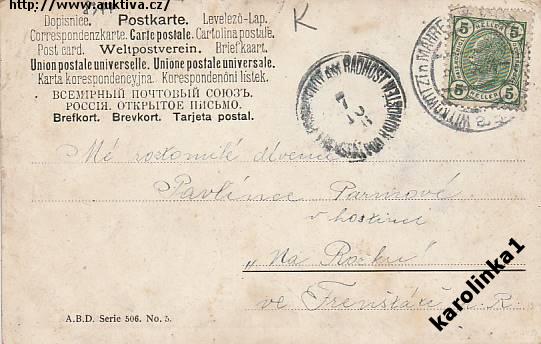 http://www.auktiva.cz/
K
Dopisnice. Postkarte. Levelező-Lap.
Correspondenzkarte. Carte postale. Cartolina postale.
Post card. Weltpostverein. Briefkaart.
Union postale universelle. Unione postale universale.
Karta korespondencyjna. Korespondenční lístek.
ВСЕМІРНЫЙ ПОЧТОВЫЙ СОЮЗЪ.
РОССІЯ. ОТКРЫТОЕ ПИСЬМО.
Brefkort. Brevkort. Tarjeta postal.
5 HELLER 5
5 HELLER 5
WITKOWITZ in MÄHREN
RADHOST
7
Mé roztomilé děvence
Pavlínce
v hostinci
„Na Rožku"
ve Frenštátě p. R.
A.B.D. Serie 506. No. 5.
karolinka1